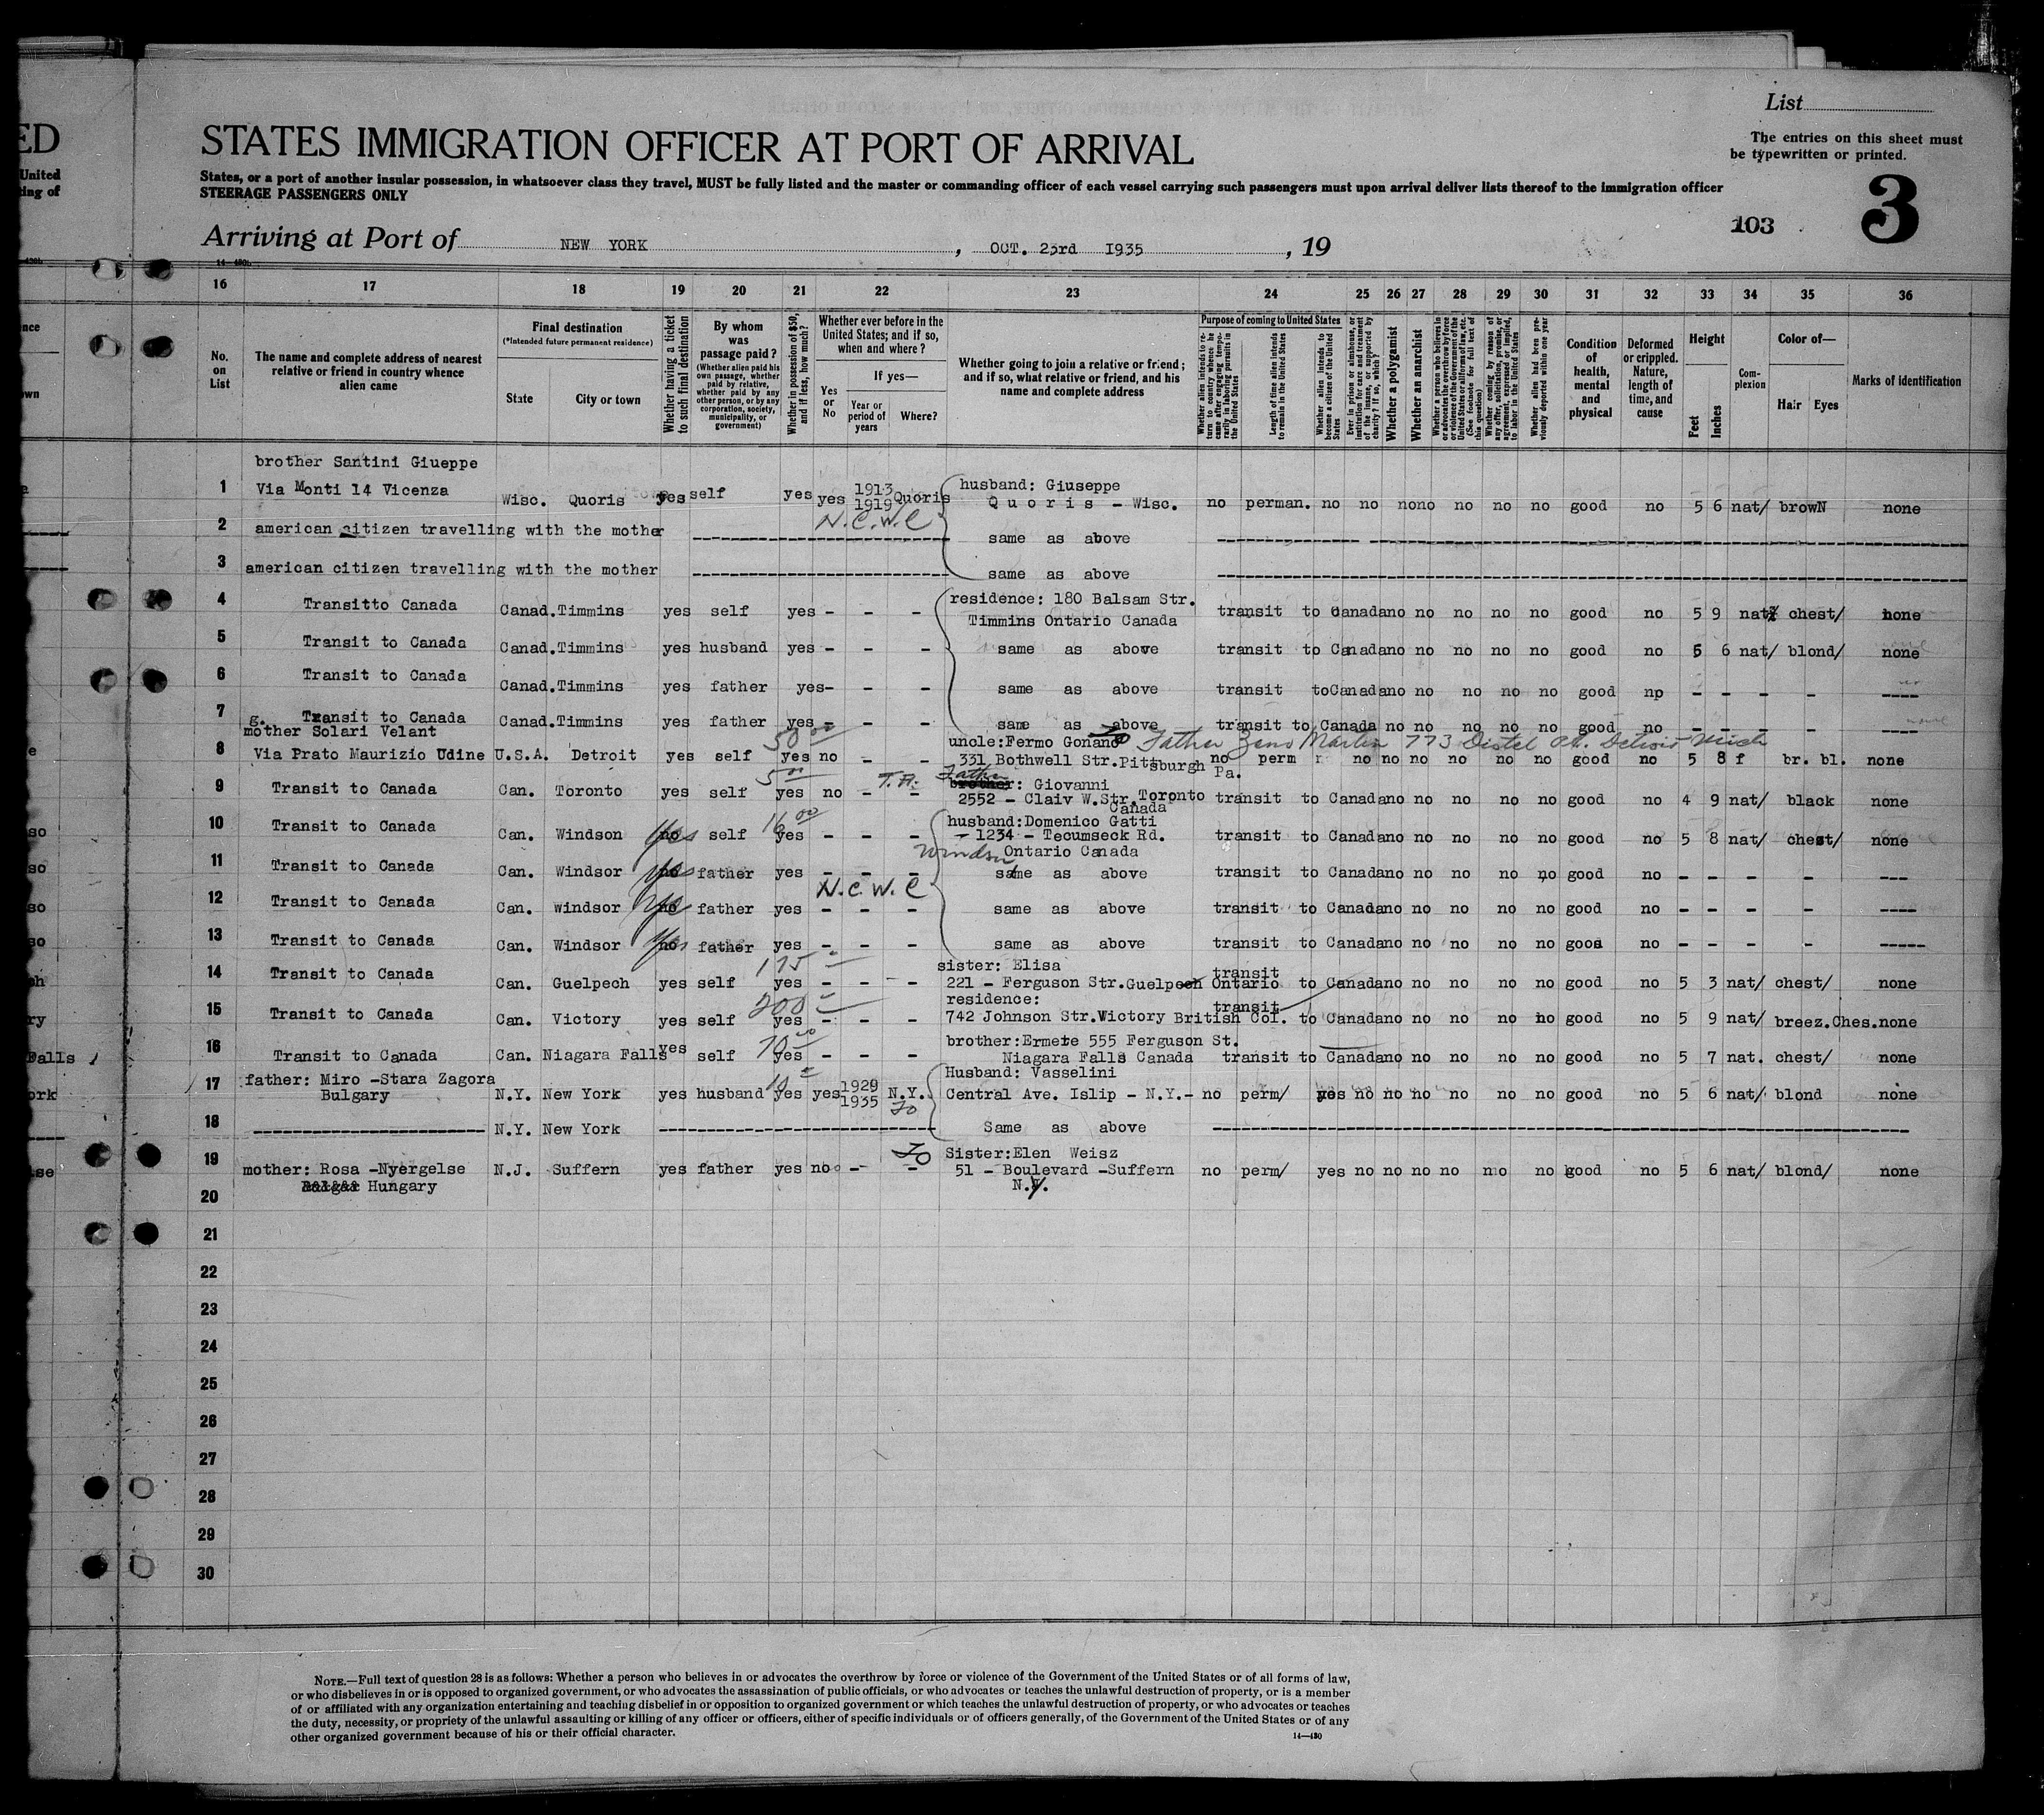 ED
United
ing of
List
The entries on this sheet must
be typewritten or printed.
STATES IMMIGRATION OFFICER AT PORT OF ARRIVAL
States, or a port of another insular possession, in whatsoever class they travel, MUST be fully listed and the master or commanding officer of each vessel carrying such passengers must upon arrival deliver lists thereof to the immigration officer
STEERAGE PASSENGERS ONLY
103
3
Arriving at Port of NEW YORK, OCT. 23rd 1935, 19
16 17 18 19 20 21 22 23 24 25 26 27 28 29 30 31 32 33 34 35 36
No. on List
The name and complete address of nearest relative or friend in country whence alien came
Final destination
(*Intended future permanent residence)
State
City or town
Whether having a ticket to such final destination
By whom was passage paid?
(Whether alien paid his own passage, whether paid by relative, whether paid by any other person, or by any corporation, society, municipality, or government)
Whether in possession of $50, and if less, how much?
Whether ever before in the United States; and if so, when and where?
Yes or No
If yes—
Year or period of years
Where?
Whether going to join a relative or friend; and if so, what relative or friend, and his name and complete address
Purpose of coming to United States
Whether alien intends to return to country whence he came after engaging temporarily in laboring pursuits in the United States
Length of time alien intends to remain in the United States
Whether alien intends to become a citizen of the United States
Ever in prison or almshouse, or institution for care and treatment of the insane, or supported by charity? If so, which?
Whether a polygamist
Whether an anarchist
Whether a person who believes in or advocates the overthrow by force or violence of the Government of the United States or all forms of law, etc. (See footnote for full text of this question)
Whether coming by reason of any offer, solicitation, promise, or agreement, expressed or implied, to labor in the United States
Whether alien had been previously deported within one year
Condition of health, mental and physical
Deformed or crippled. Nature, length of time, and cause
Height
Feet
Inches
Complexion
Color of—
Hair Eyes
Marks of identification
brother Santini Giueppe
1 Via Monti 14 Vicenza Wisc. Quoris yes self yes yes 1913 1919 Quoris husband: Giuseppe
Quoris - Wisc. no perman. no no nono no no no good no 5 6 nat/ browN none
N.C.W.C
2 american citizen travelling with the mother same as above
3 american citizen travelling with the mother same as above
4 Transitto Canada Canad.Timmins yes self yes - - - residence: 180 Balsam Str.
Timmins Ontario Canada transit to Canadano no no no no good no 5 9 nat/ chest/ none
5 Transit to Canada Canad.Timmins yes husband yes - - - same as above transit to Canadano no no no no good no 5 6 nat/ blond/ none
6 Transit to Canada Canad.Timmins yes father yes- - - same as above transit toCanadano no no no no good np - - - - ----
7 Transit to Canada Canad.Timmins yes father yes - - - same as above transit to Canada no no no no no good no - - - -
g.
mother Solari Velant 50 00 uncle:Fermo Gonano Father Zeno Martin 773 Distel St. Detroit Mich
8 Via Prato Maurizio Udine U.S.A. Detroit yes self yes no - - 331 Bothwell Str.Pittsburgh Pa. no perm no no no no no no good no 5 8 f br. bl. none
5 00 T.A. Father
brother: Giovanni
9 Transit to Canada Can. Toronto yes self yes no - - 2552 - Claiv W.Str.Toronto Canada transit to Canadano no no no no good no 4 9 nat/ black none
16 00 husband:Domenico Gatti
10 Transit to Canada Can. Windson no yes self yes - - - 1234 - Tecumseck Rd. transit to Canadano no no no no good no 5 8 nat/ chest/ none
Windsor Ontario Canada
11 Transit to Canada Can. Windsor no yes father yes - - - same as above transit to Canadano no no no no good no - - - - ---
N.C.W.C
12 Transit to Canada Can. Windsor no yes father yes - - - same as above transit to Canadano no no no no good no - - - - ----
13 Transit to Canada Can. Windsor no yes father yes - - - same as above transit to Canadano no no no no good no - - - - -----
175 sister: Elisa
14 Transit to Canada Can. Guelpech yes self yes - - - 221 - Ferguson Str.Guelpech Ontario transit to Canadano no no no no good no 5 3 nat/ chest/ none
200 residence:
15 Transit to Canada Can. Victory yes self yes - - - 742 Johnson Str.Wictory British Col. transit to Canadano no no no no good no 5 9 nat/ breez.Ches.none
70 brother:Ermete 555 Ferguson St.
16 Transit to Canada Can. Niagara Falls yes self yes - - - Niagara Falls Canada transit to Canadano no no no no good no 5 7 nat. chest/ none
17 father: Miro -Stara Zagora 10 Husband: Vasselini
Bulgary N.Y. New York yes husband yes yes 1929 1935 N.Y. Central Ave. Islip - N.Y.- no perm/ yes no no no no no no good no 5 6 nat/ blond none
18 N.Y. New York Same as above
19 mother: Rosa -Nyergelse N.J. Suffern yes father yes no - - Sister:Elen Weisz
51 - Boulevard -Suffern no perm/ yes no no no no no no good no 5 6 nat/ blond/ none
Hungary N.
20
21
22
23
24
25
26
27
28
29
30
NOTE.—Full text of question 28 is as follows: Whether a person who believes in or advocates the overthrow by force or violence of the Government of the United States or of all forms of law,
or who disbelieves in or is opposed to organized government, or who advocates the assassination of public officials, or who advocates or teaches the unlawful destruction of property, or is a member
of or affiliated with any organization entertaining and teaching disbelief in or opposition to organized government or which teaches the unlawful destruction of property, or who advocates or teaches
the duty, necessity, or propriety of the unlawful assaulting or killing of any officer or officers, either of specific individuals or of officers generally, of the Government of the United States or of any
other organized government because of his or their official character.
14—480